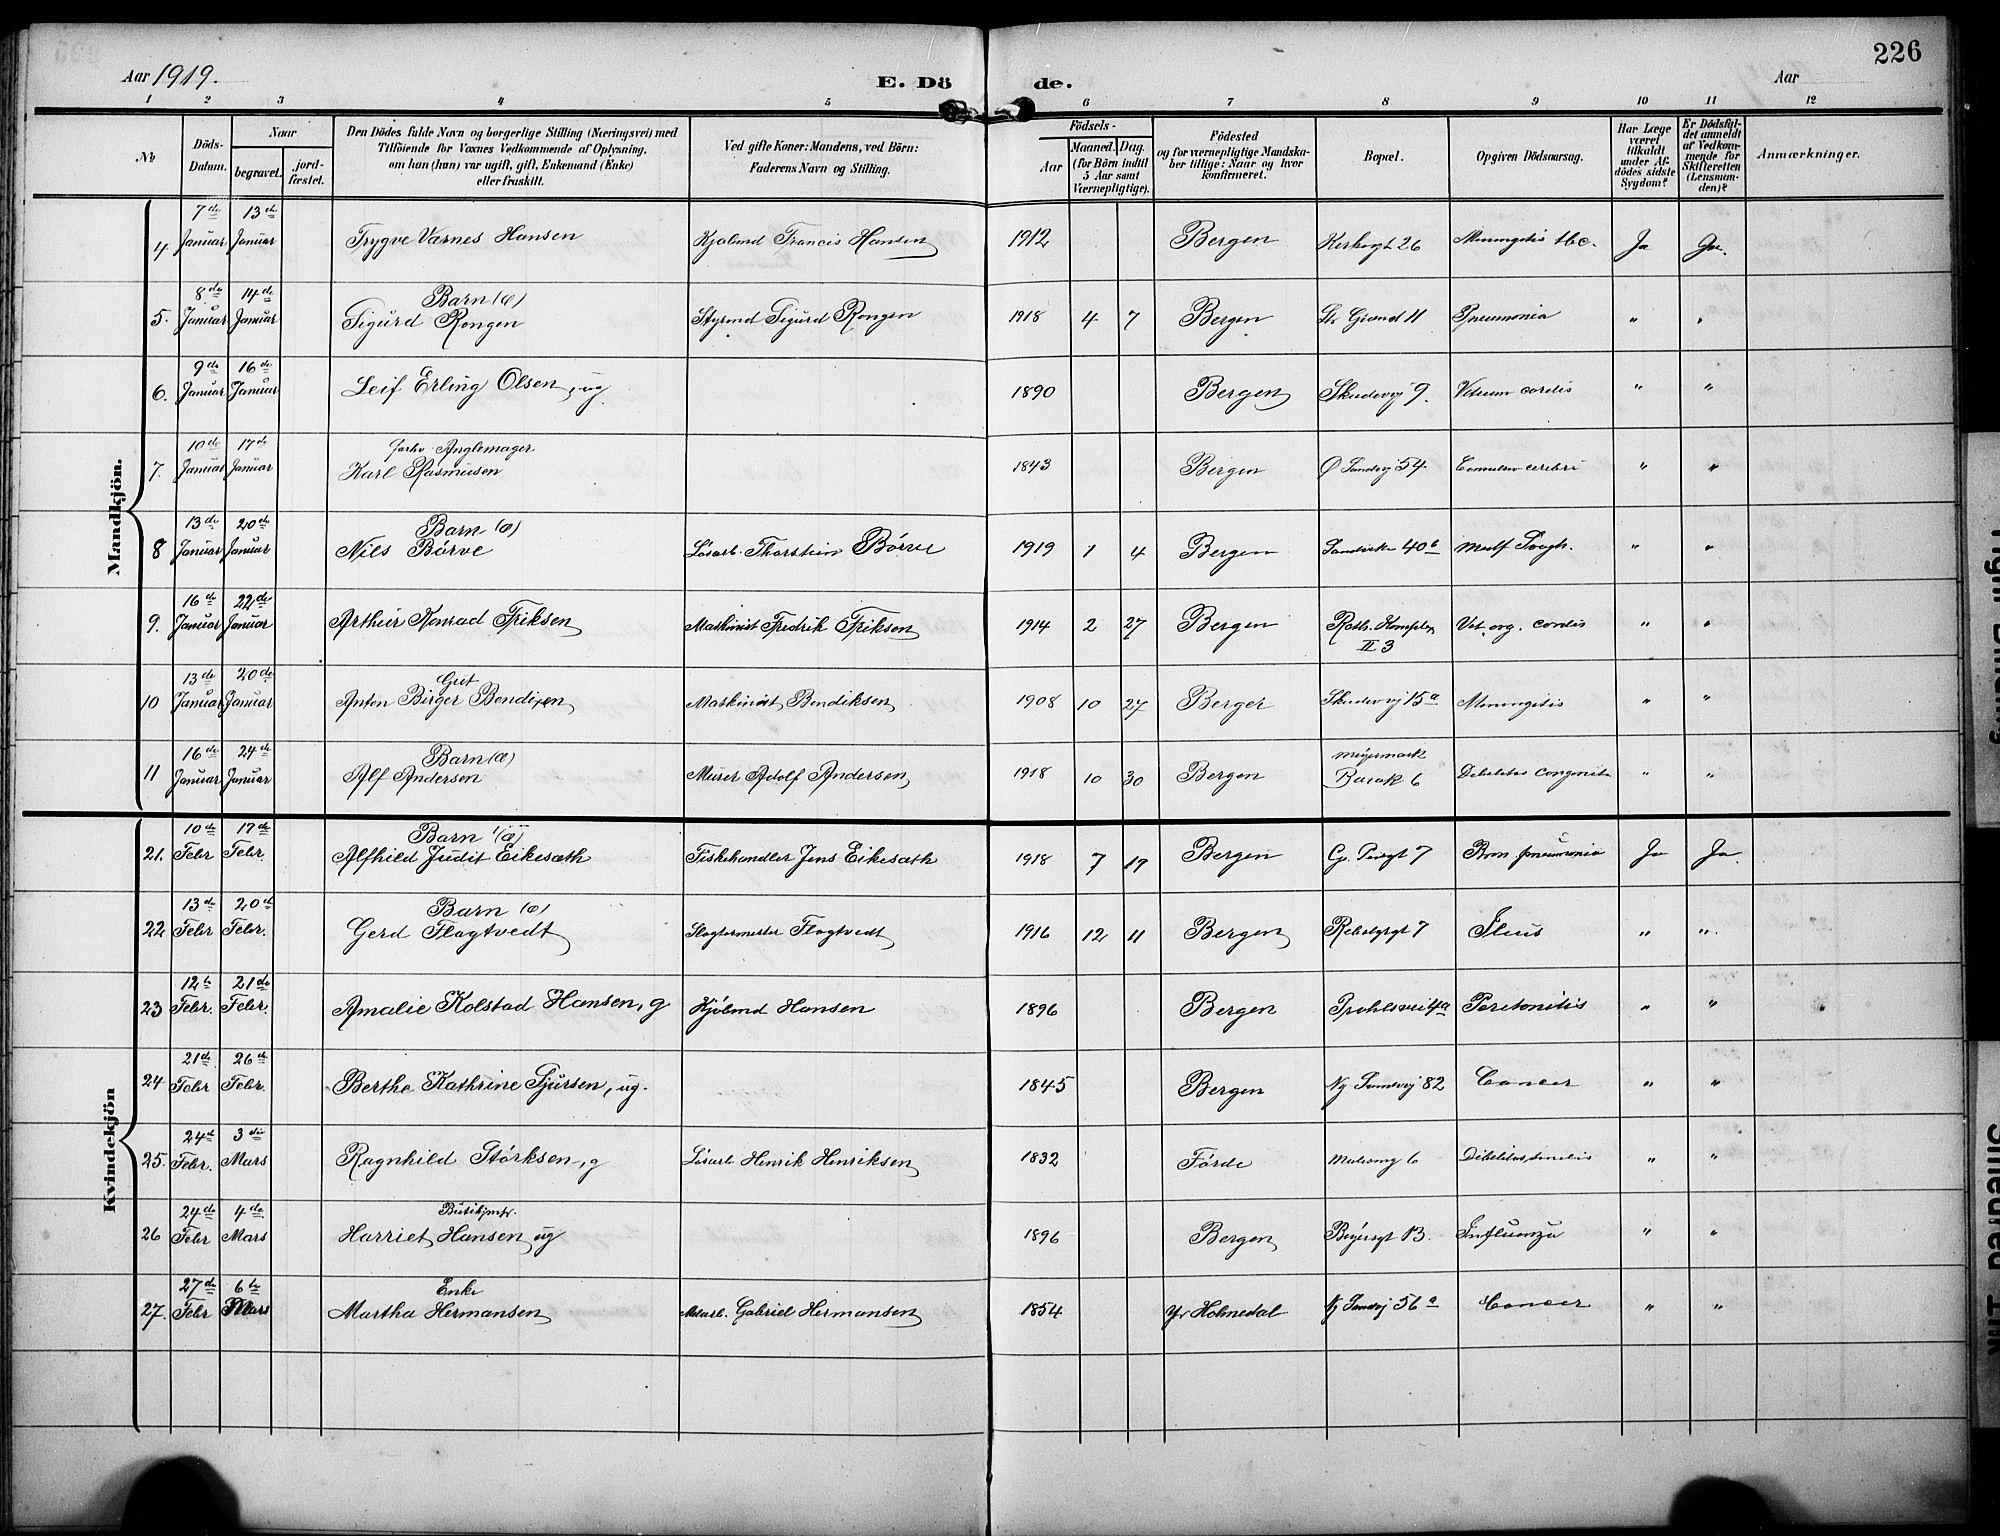 226
Aar 1919.
E. Dö de.
Aar
1 2 3 4 5 6 7 8 9 10 11 12
No
Döds-Datum.
Naar
begravet.
jord-fæstet.
Den Dödes fulde Navn og borgerlige Stilling (Næringsvei) med
Tilföiende for Voxnes Vedkommende af Oplysning,
om han (hun) var ugift, gift, Enkemand (Enke)
eller fraskilt.
Ved gifte Koner: Mandens, ved Börn:
Faderens Navn og Stilling.
Födsels-
Aar
Maaned. Dag.
(for Börn indtil
5 Aar samt
Værnepligtige).
Födested
og for værnepligtige Mandska-
ber tillige: Naar og hvor
konfirmeret.
Bopæl.
Opgiven Dödsaarsag.
Har Læge
været
tilkaldt
under Af-
dödes sidste
Sygdom?
Er Dödsfal-
det anmeldt
af Vedkom-
mende for
Skifteretten
(Lensman-
den)?
Anmærkninger.
Mandkjön.
7de 13de
4 Januar Januar Trygve Værnes Hansen Francis Hansen 1912 Bergen 26 Meningitis tbc. Ja Ja.
8de 14de Barn (æ)
5. Januar Januar Sigurd Rongen Styrmd Sigurd Rongen 1918 4 7 Bergen 11 Pneumonia " "
9de 16de
6. Januar Januar Leif Erling Olsen, ug 1890 Bergen Skudevij 9. Vitium cordis " "
10de 17de forhv. Anglemager
7. Januar Januar Karl Rasmussen 1843 Bergen Ø Sandvij 54. cerebri " "
13de 20de Barn (æ)
8 Januar Januar Nils Börve Lösarb. Thorstein Börve 1919 1 4 Bergen 40b " "
16de 22de
9. Januar Januar Arthur Konrad Eriksen Maskinist Fredrik Eriksen 1914 2 27 Bergen Roth. Komplex II 3 Vit. org. cordis " "
13de 20de Gut
10 Januar Januar Anton Birger Bendixen Maskinist Bendiksen 1908 10 27 Bergen Skudevij 15a Meningitis " "
16de 24de Barn (æ)
11 Januar Januar Alf Andersen Murer Adolf Andersen 1918 10 30 Bergen Meyermark Barak 6 Debilitas congenita " "
Kvindekjön
10de 17de Barn (æ)
21. Febr Febr. Alfhild Judit Eikesæth Fiskehandler Jens Eikesæth 1918 7 19 Bergen 7 Bron. pneumonia Ja Ja.
13de 20de Barn (æ)
22 Febr Febr. Gerd Flagtvedt Slagtermester Flagtvedt 1916 12 11 Bergen 7 Ileus " "
12te 21de
23 Febr. Febr. Amalie Kolstad Hansen, g Hansen 1896 Bergen Peritonitis " "
21de 26de
24 Febr Febr. Berthe Kathrine Sjursen, ug. 1845 Bergen Ny Sandvij 82 Cancer " "
24de 3die
25. Febr. Mars Ragnhild Störksen, g Lösarb Henrik Henriksen 1832 Förde 6 Debilitas senilis " "
24de 4de Butikjmfr.
26 Febr Mars Harriet Hansen ug 1896 Bergen 13. Influenza " "
27de 6te Enke
27. Febr Mars Martha Hermansen Gabriel Hermansen 1854 Yr Holmedal Ny Sandvij 56a Cancer " "